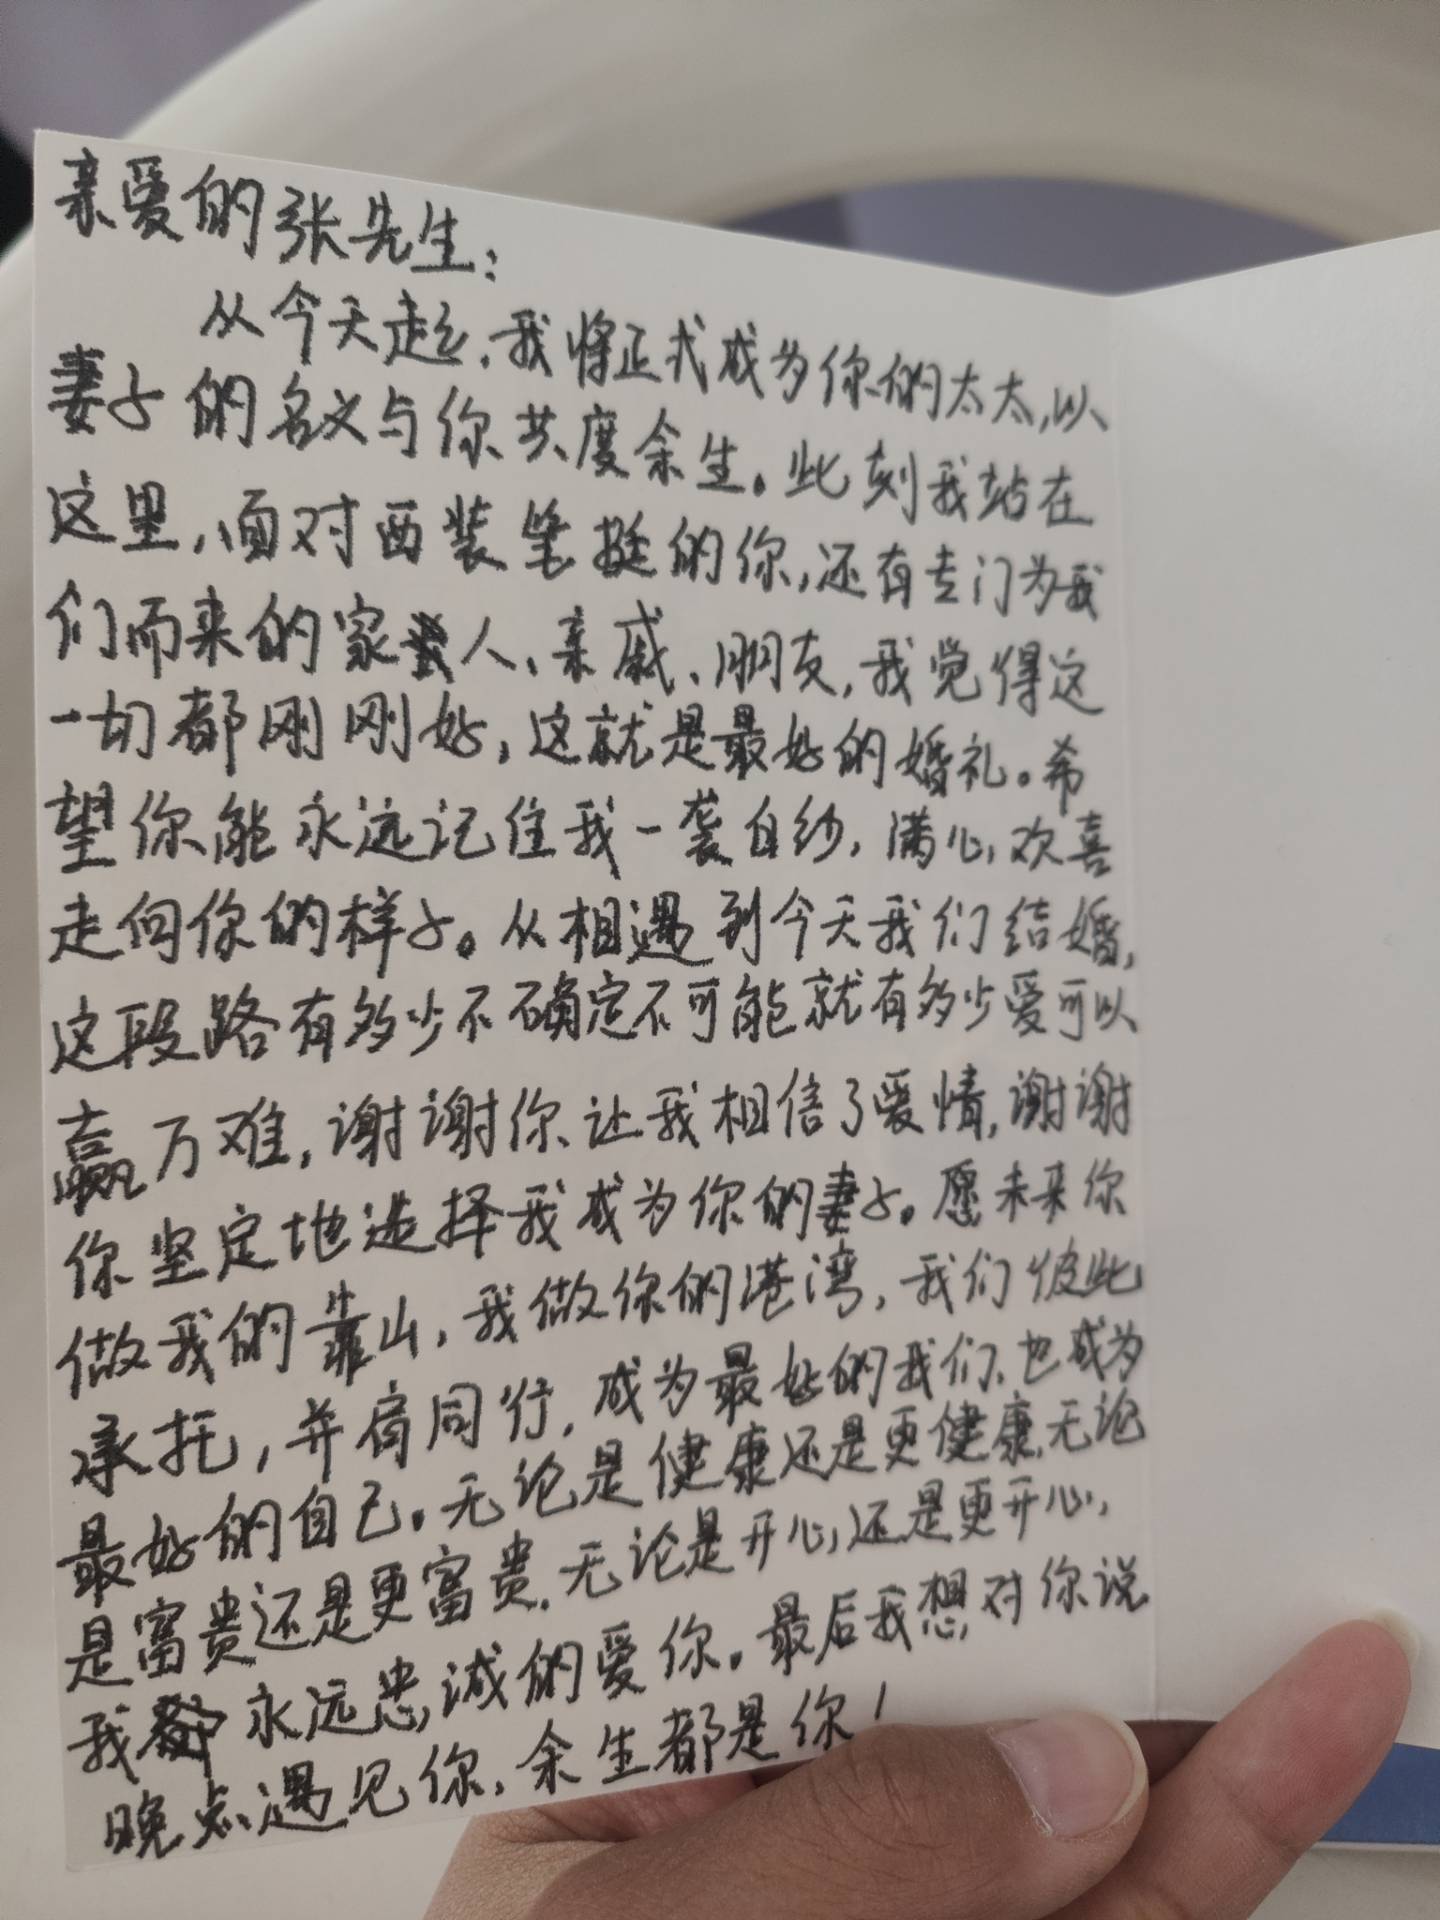 亲爱的张先生：
从今天起，我将正式成为你的太太，以
妻子的名义与你共度余生。此刻我站在
这里，面对西装笔挺的你，还有专门为我
们而来的家人、亲戚、朋友，我觉得这
一切都刚刚好，这就是最好的婚礼。希
望你能永远记住我一袭白纱，满心欢喜
走向你的样子。从相遇到今天我们结婚，
这段路有多少不确定不可能就有多少爱可以
赢万难，谢谢你让我相信了爱情，谢谢
你坚定地选择我成为你的妻子。愿未来你
做我的靠山，我做你的港湾，我们彼此
承托，并肩同行，成为最好的我们、也成为
最好的自己。无论是健康还是更健康，无论
是富贵还是更富贵，无论是开心，还是更开心，
我都永远忠诚的爱你。最后我想对你说
晚点遇见你，余生都是你！